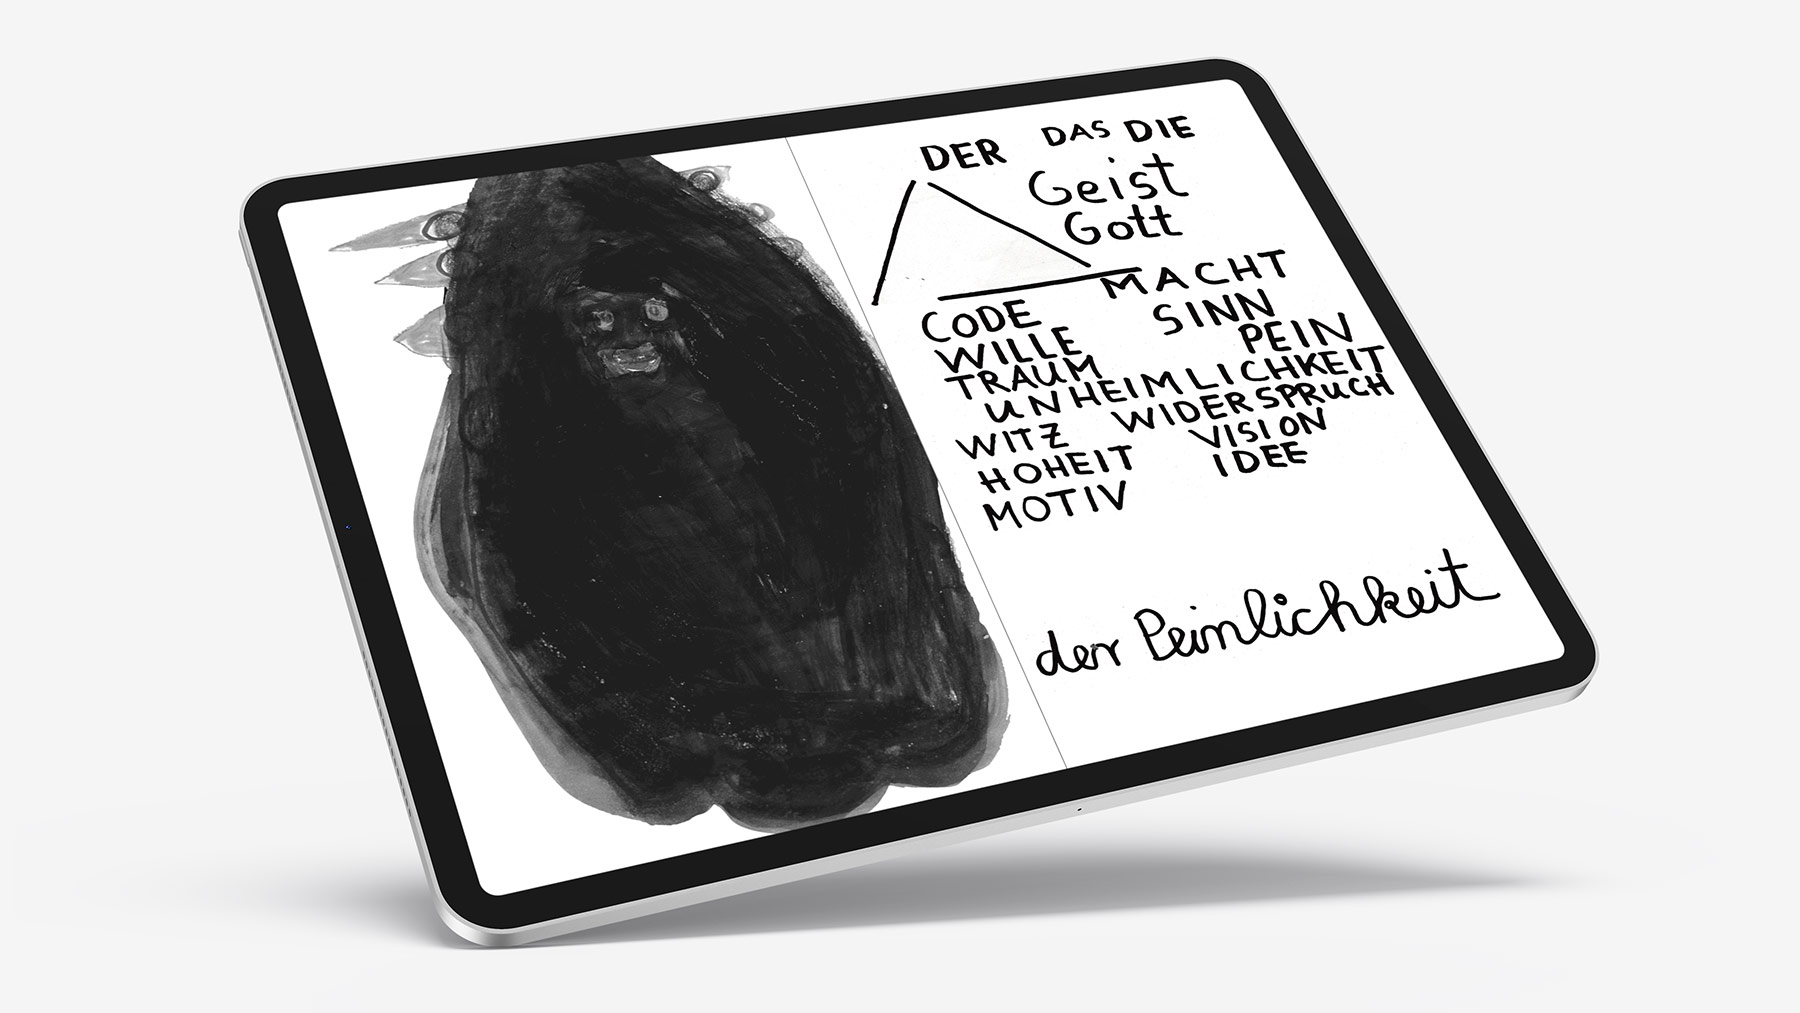 DER DAS DIE
Geist
Gott
MACHT
CODE SINN
WILLE PEIN
TRAUM
UNHEIMLICHKEIT
WITZ WIDERSPRUCH
HOHEIT VISION
MOTIV IDEE
der Peinlichkeit